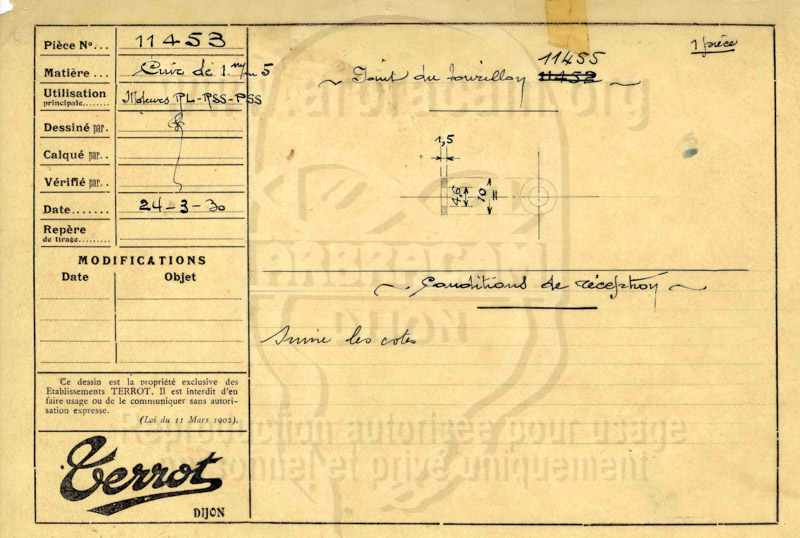 Pièce No... 11453
Matière.... Cuir de 1.m/m 5
Utilisation
principale........ Moteurs PL-RSS-PSS
Dessiné par.
Calqué par..
Vérifié par..
Date....... 24-3-30
Repère
de tirage.........
MODIFICATIONS
Date Objet
Ce dessin est la propriété exclusive des
Etablissements TERROT. Il est interdit d'en
faire usage ou de le communiquer sans autori-
sation expresse.
(Loi du 11 Mars 1902).
Terrot
DIJON
1 pièce
11455
~ Joint du tourillon 11452 ~
1,5
4,6
10
=
~ Conditions de réception ~
Suivre les cotes
www.arbracam.org
ARBRACAM
DIJON
Reproduction autorisée pour usage
personnel et privé uniquement